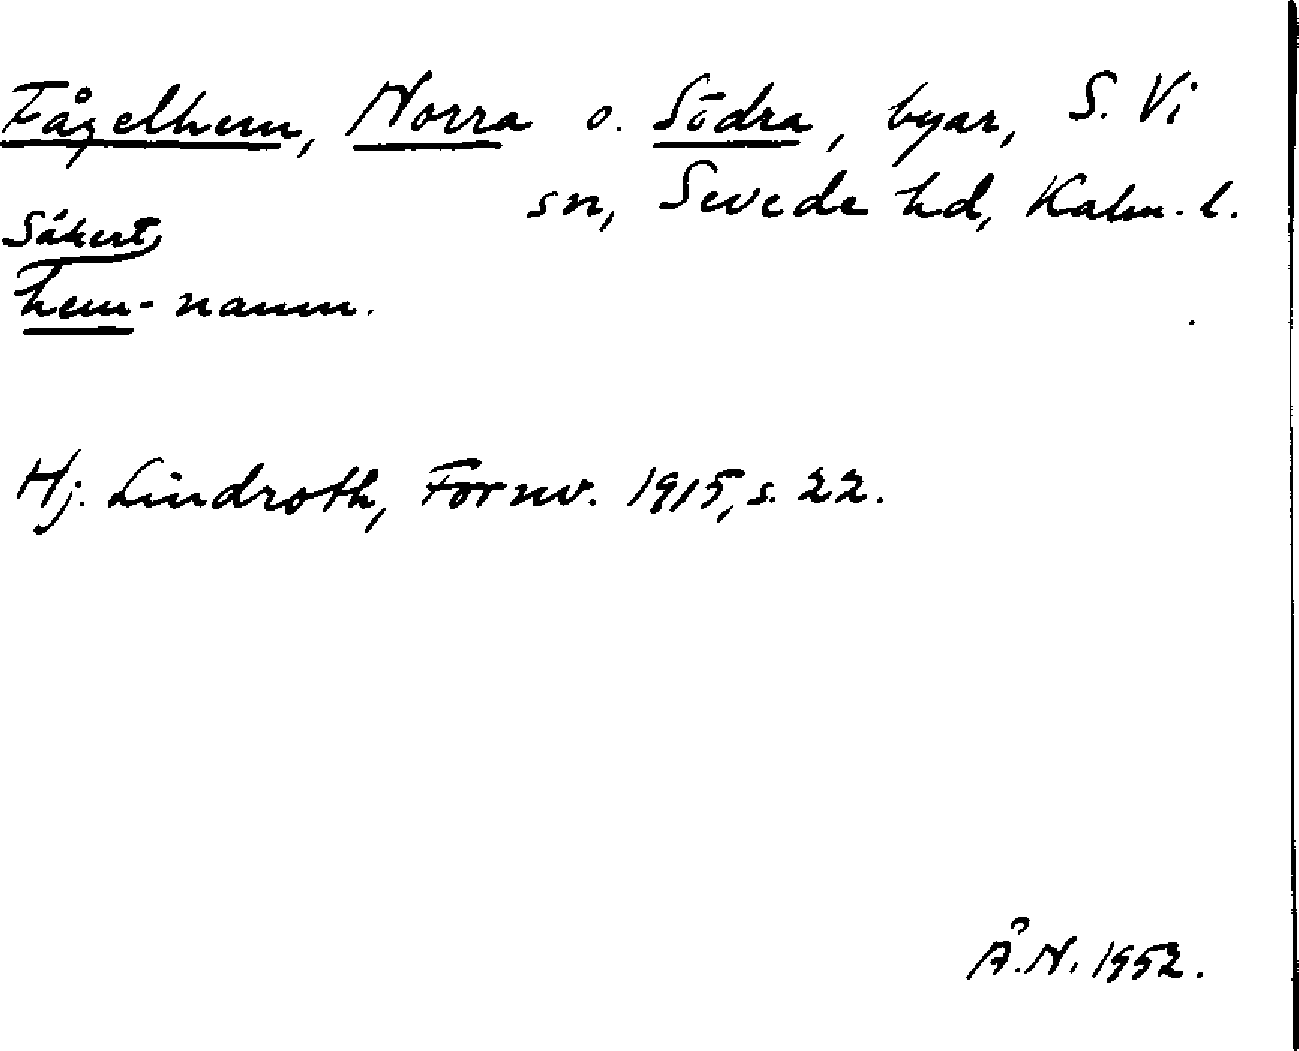 Fågelhem, Norra o. Södra, byar, S. Vi
sn, Sevede hd, Kalm. l.
Säkert
hem-namn.
Hj. Lindroth, Fornv. 1915, s. 22.
Å.N. 1952.